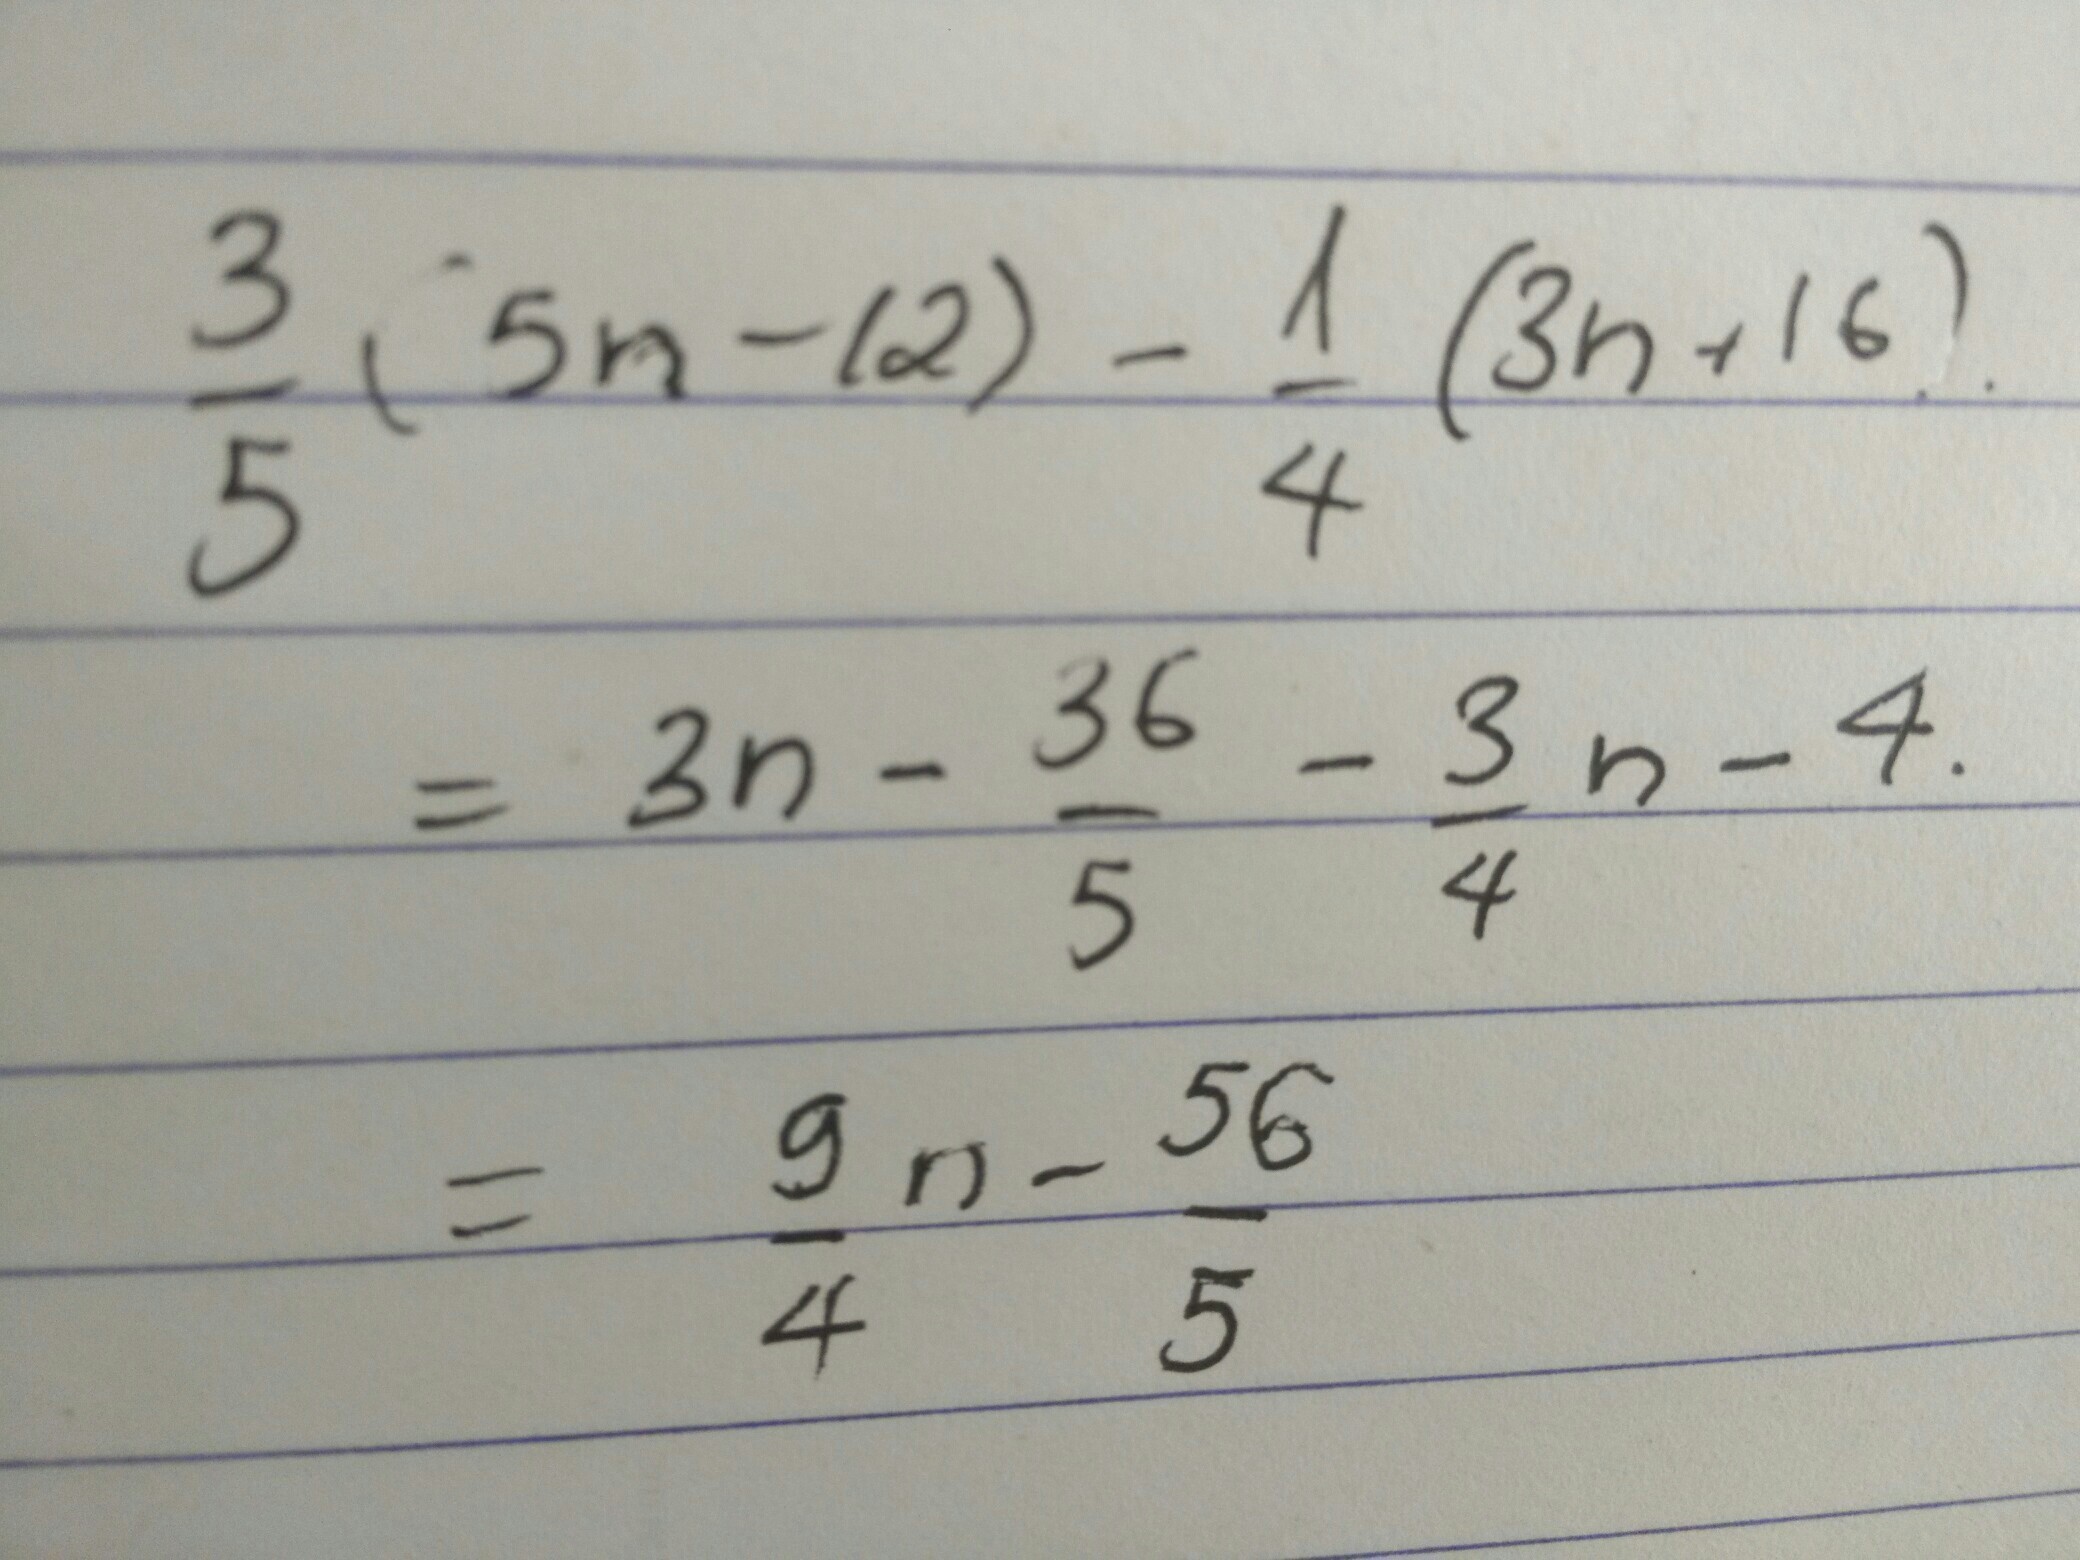 3/5 (5n - 12) - 1/4 (3n + 16).
= 3n - 36/5 - 3/4 n - 4.
= 9/4 n - 56/5